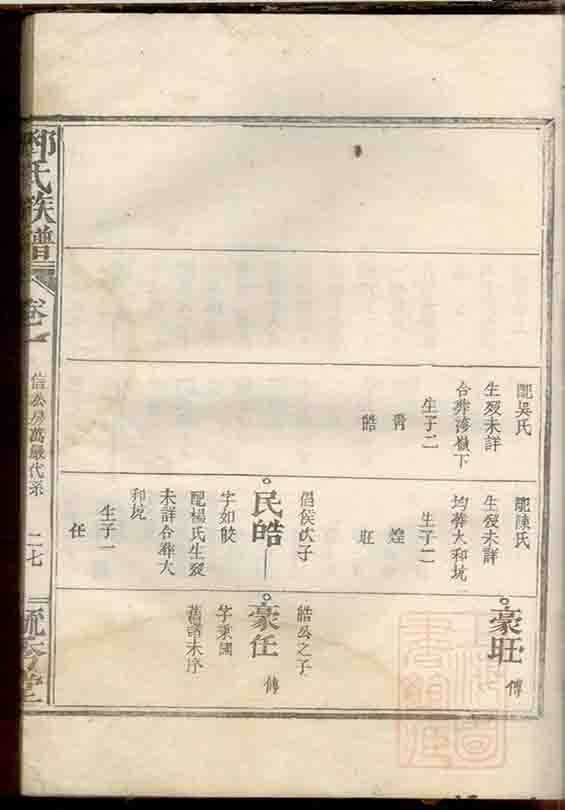 配吳氏
生歿未詳
合葬灣嶺下
生子二
霄
皓
配陳氏
生歿未詳
均葬大和坑
生子二
煌
旺
倡侯次子
民皓
字如皎
配楊氏生歿
未詳合葬大
和坑
生子一
任
豪旺
傳
皓公之子
豪任
傳
字秉國
舊譜未序
鄧氏族譜
卷一
信公房萬嚴代系
二七